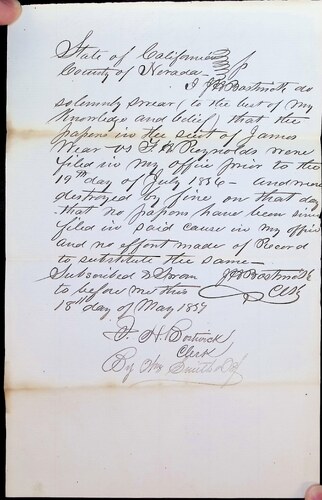 State of California
County of Nevada
I J H Bostwick do
solemnly swear (to the best of my
knowledge and belief) that the
papers in the suit of James
Wear vs F H Reynolds were
filed in my office prior to the
19th day of July 1856 - and were
destroyed by fire on that day
that no papers have been since
filed in said cause in my office
and no effort made of Record
to substitute the same -
Subscribed & Sworn J H Bostwick
to before me this Clk
18th day of May 1857
H. Bostwick
Clerk
By Wm Smith